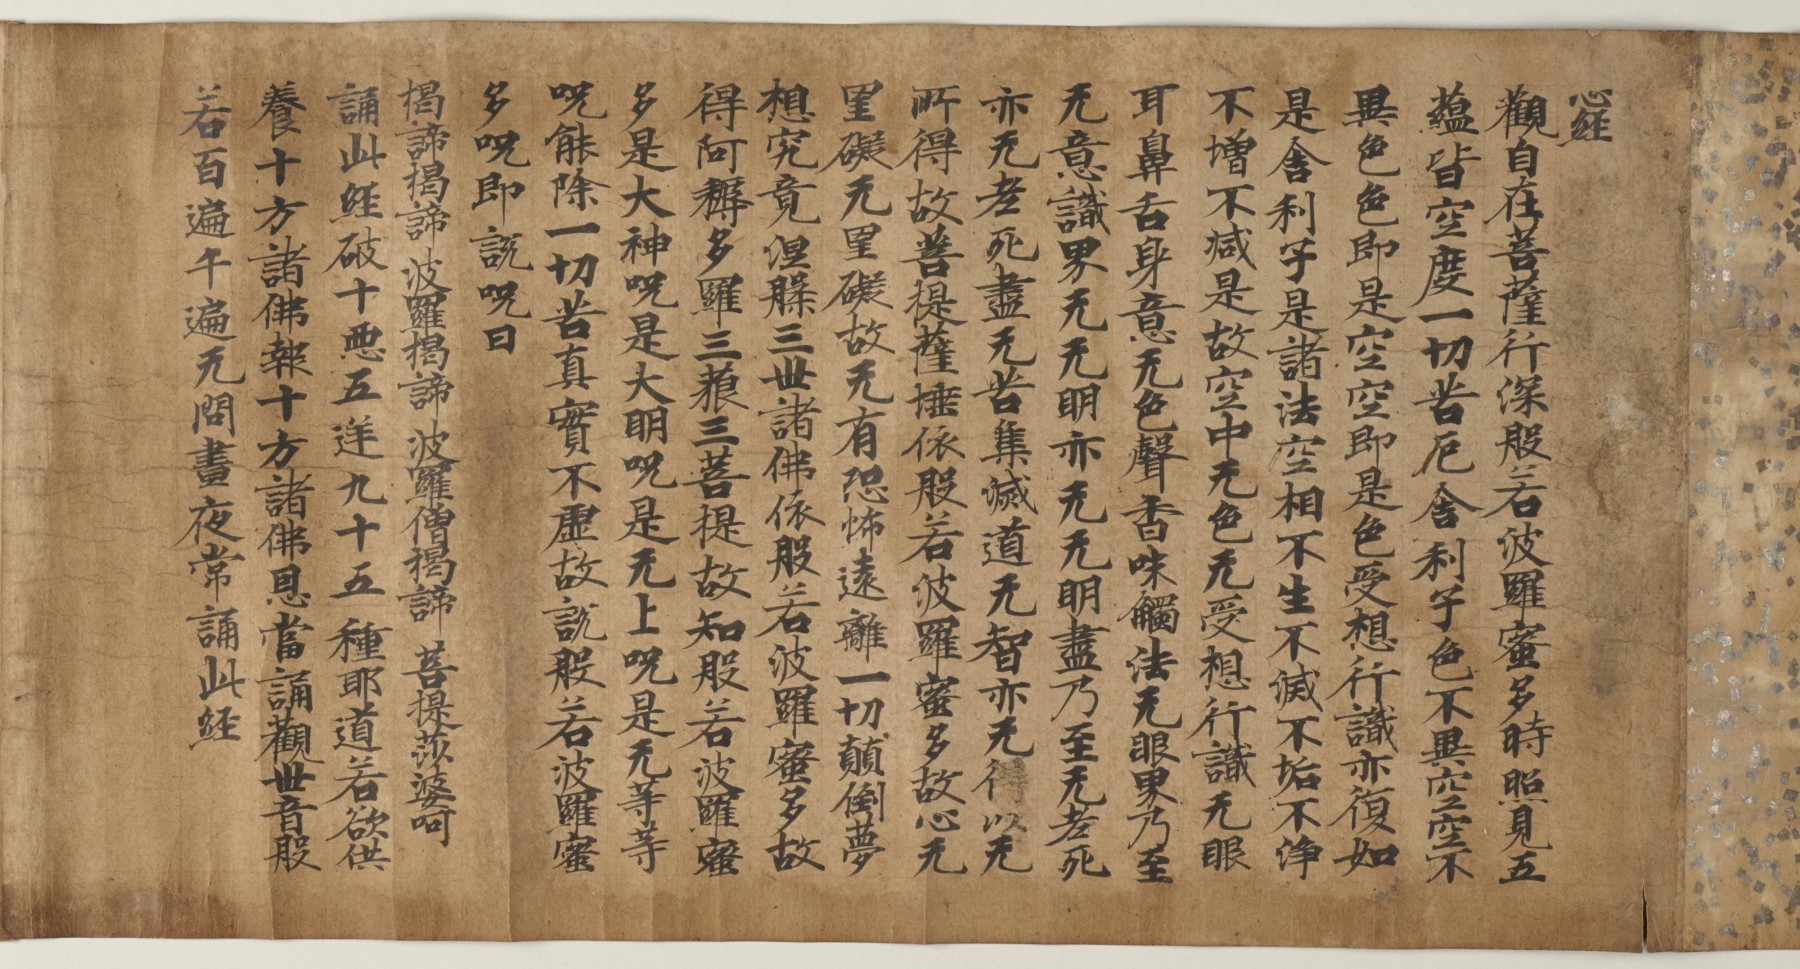 心経
觀自在菩薩行深般若波羅蜜多時照見五
蘊皆空度一切苦厄舍利子色不異空空不
異色色即是空空即是色受想行識亦復如
是舍利子是諸法空相不生不滅不垢不净
不增不减是故空中无色无受想行識无眼
耳鼻舌身意无色聲香味觸法无眼界乃至
无意識界无无明亦无无明盡乃至无老死
亦无老死盡无苦集滅道无智亦无得以无
所得故菩提薩埵依般若波羅蜜多故心无
罣礙无罣礙故无有恐怖遠離一切顛倒夢
想究竟涅槃三世諸佛依般若波羅蜜多故
得阿耨多羅三藐三菩提故知般若波羅蜜
多是大神呪是大明呪是无上呪是无等等
呪能除一切苦真實不虚故說般若波羅蜜
多呪即說呪曰
揭諦揭諦 波羅揭諦 波羅僧揭諦 菩提莎婆呵
誦此經破十惡五逆九十五種耶道若欲供
養十方諸佛報十方諸佛恩當誦觀世音般
若百遍千遍无問晝夜常誦此經